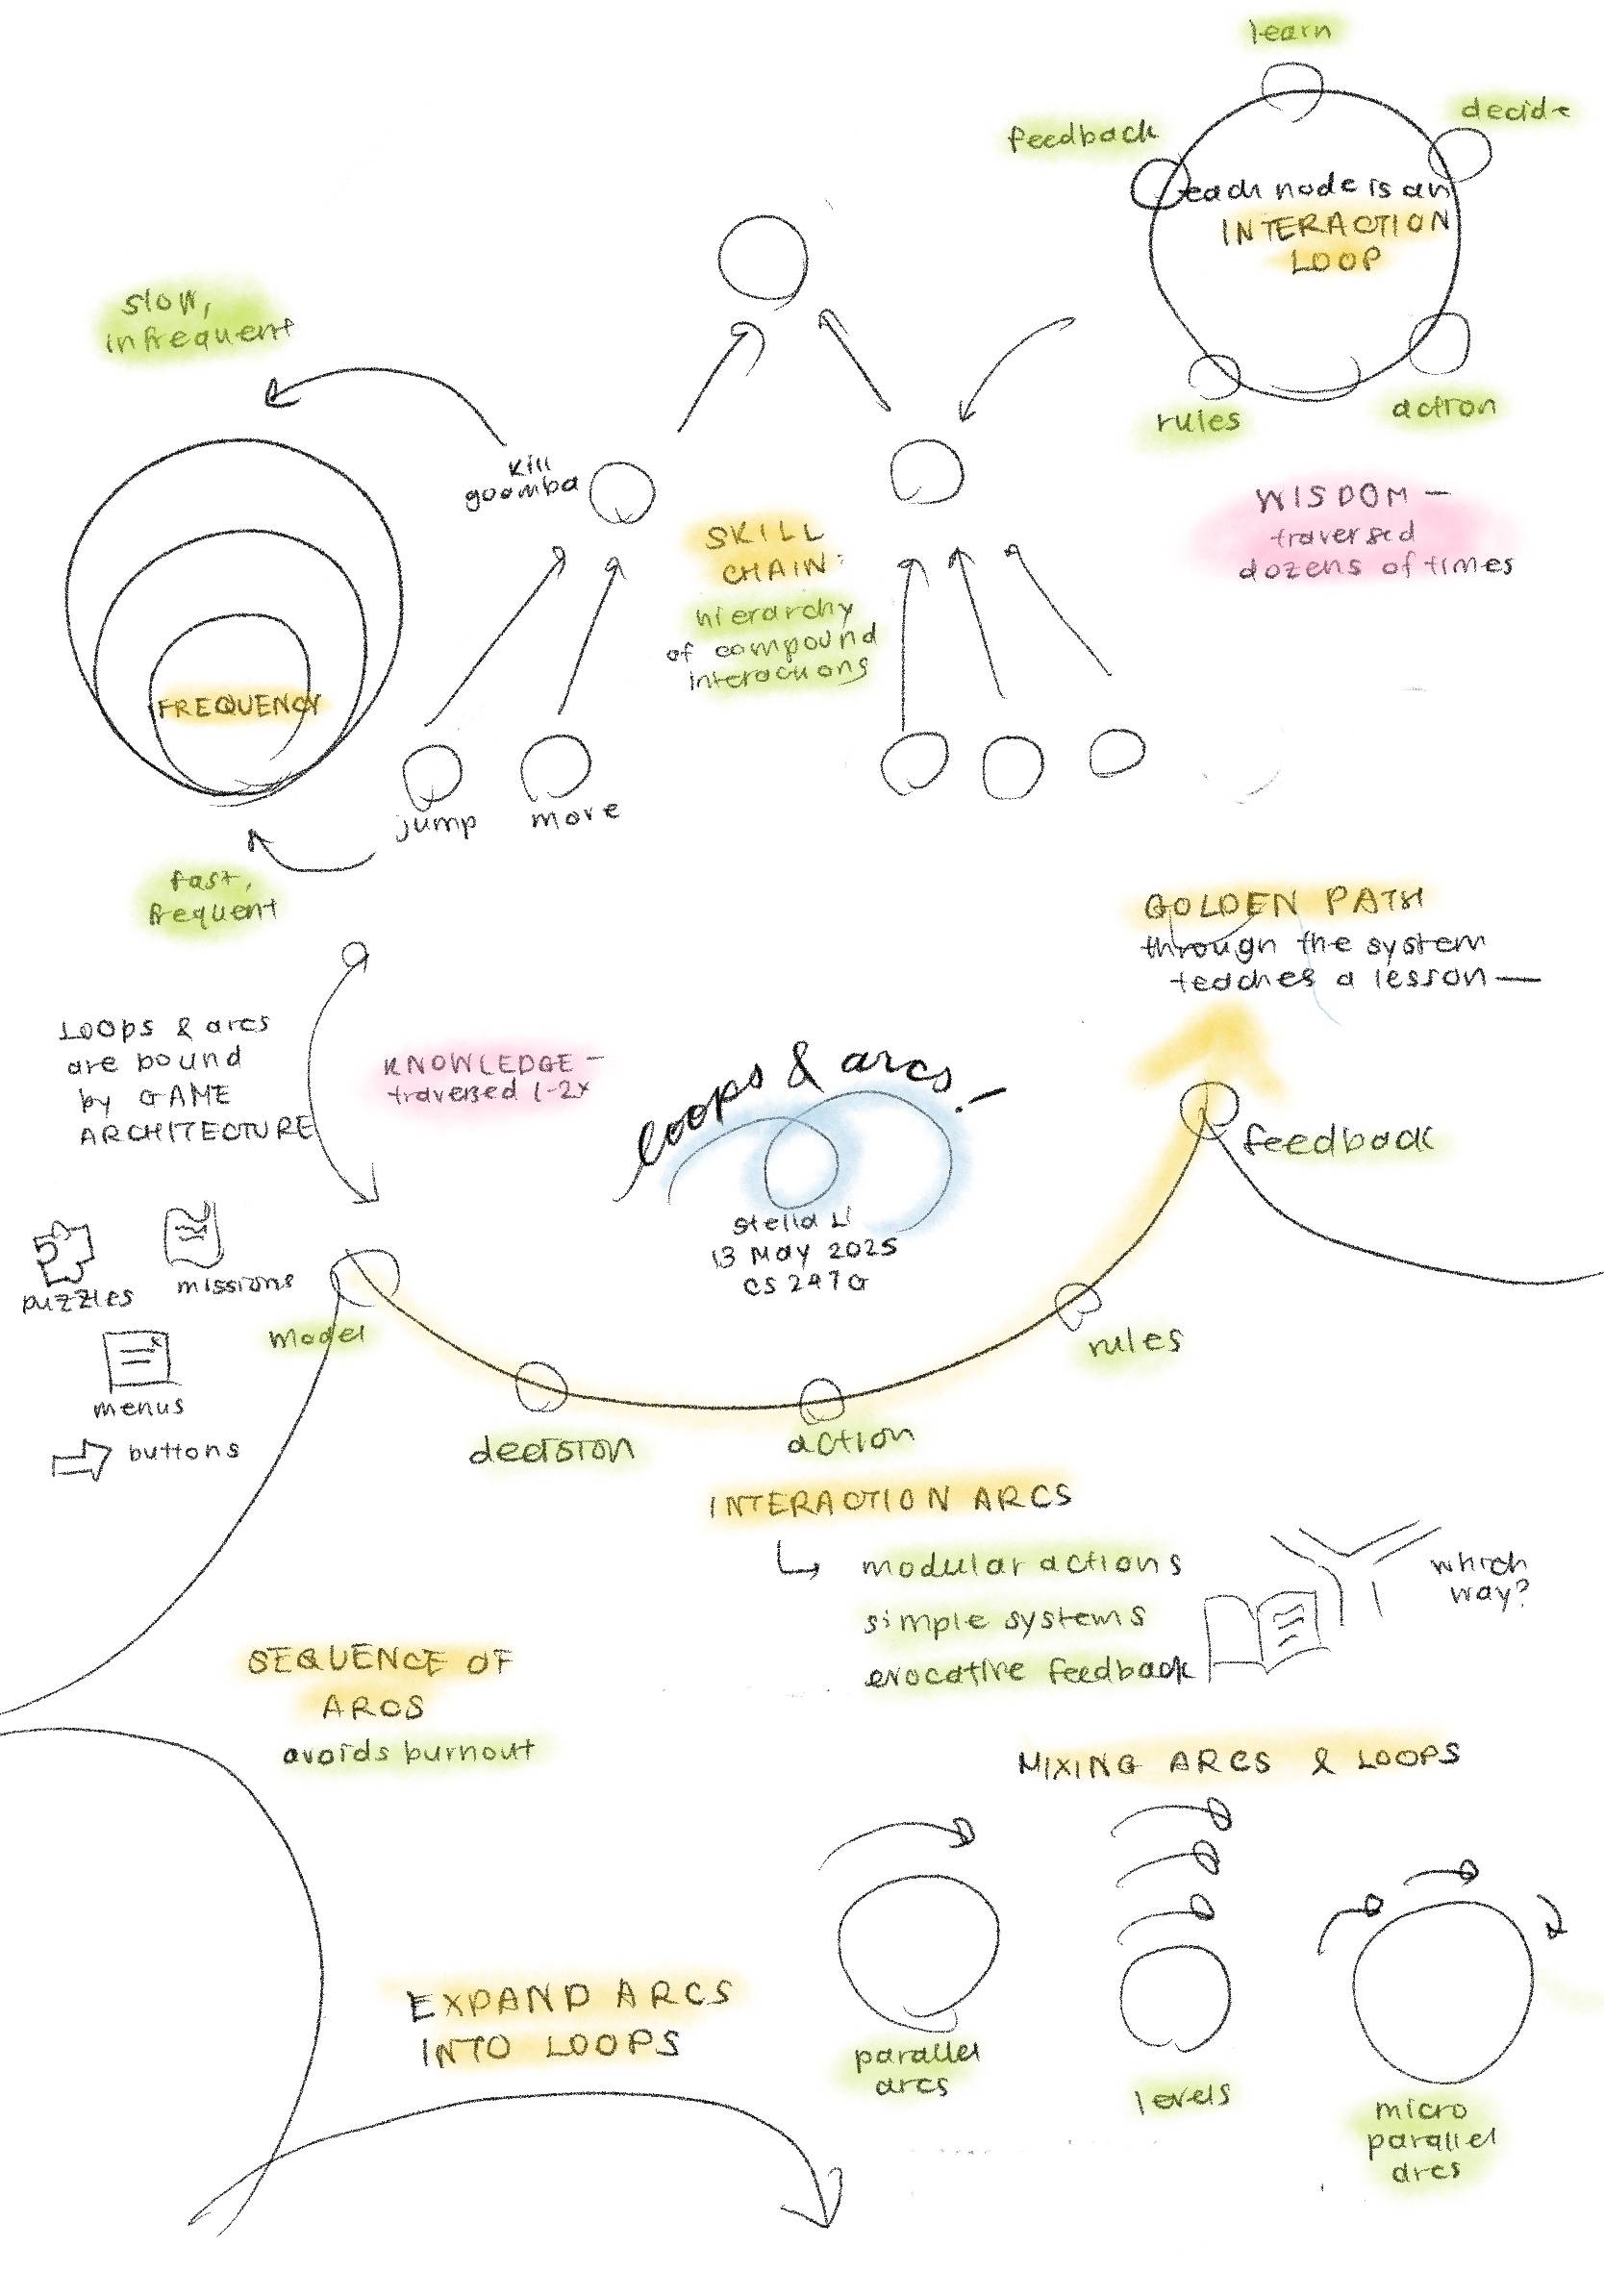 learn
decide
feedback
each node is an
INTERACTION
LOOP
rules
action
WISDOM –
traversed
dozens of times
slow,
infrequent
kill
goomba
SKILL
CHAIN:
hierarchy
of compound
interactions
FREQUENCY
jump
move
fast,
frequent
GOLDEN PATH
through the system
teaches a lesson —
Loops & arcs
are bound
by GAME
ARCHITECTURE
KNOWLEDGE –
traversed 1-2x
loops & arcs!
Stella Li
13 May 2025
CS 247G
feedback
puzzles
missions
menus
buttons
model
decision
action
rules
INTERACTION ARCS
modular actions
simple systems
evocative feedback
which
way?
SEQUENCE OF
ARCS
avoids burnout
MIXING ARCS & LOOPS
EXPAND ARCS
INTO LOOPS
parallel
arcs
levels
micro
parallel
arcs